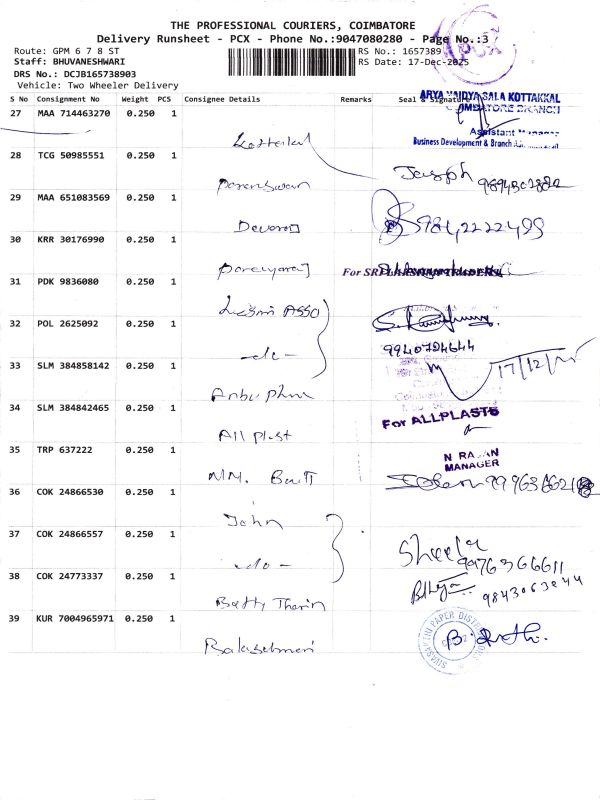 THE PROFESSIONAL COURIERS, COIMBATORE
Delivery Runsheet - PCX - Phone No.:9047080280 - Page No.:3
Route: GPM 6 7 8 ST
RS No.: 1657389
Staff: BHUVANESHWARI
RS Date: 17-Dec-2025
DRS No.: DCJB165738903
Vehicle: Two Wheeler Delivery
PCX
S No Consignment No Weight PCS Consignee Details Remarks Seal & Signature
ARYA VAIDYA SALA KOTTAKKAL
COIMBATORE BRANCH
27 MAA 714463270 0.250 1
Assistant Manager
Business Development & Branch
Kottakal
28 TCG 50985551 0.250 1
Joseph
Parameswaran
29 MAA 651083569 0.250 1
Devaraj
9842222499
30 KRR 30176990 0.250 1
For SRI
31 PDK 9836080 0.250 1
Laxmi ASSO
32 POL 2625092 0.250 1
-do-
9940724644
33 SLM 384858142 0.250 1
17/12/25
34 SLM 384842465 0.250 1
For ALLPLASTS
All plast
35 TRP 637222 0.250 1
N RAJAN
MANAGER
MM. Batt
36 COK 24866530 0.250 1
John
37 COK 24866557 0.250 1
Sheela
9976366611
-do-
38 COK 24773337 0.250 1
9843063244
39 KUR 7004965971 0.250 1
SIVASAKTHI PAPER DISTRIBUTORS